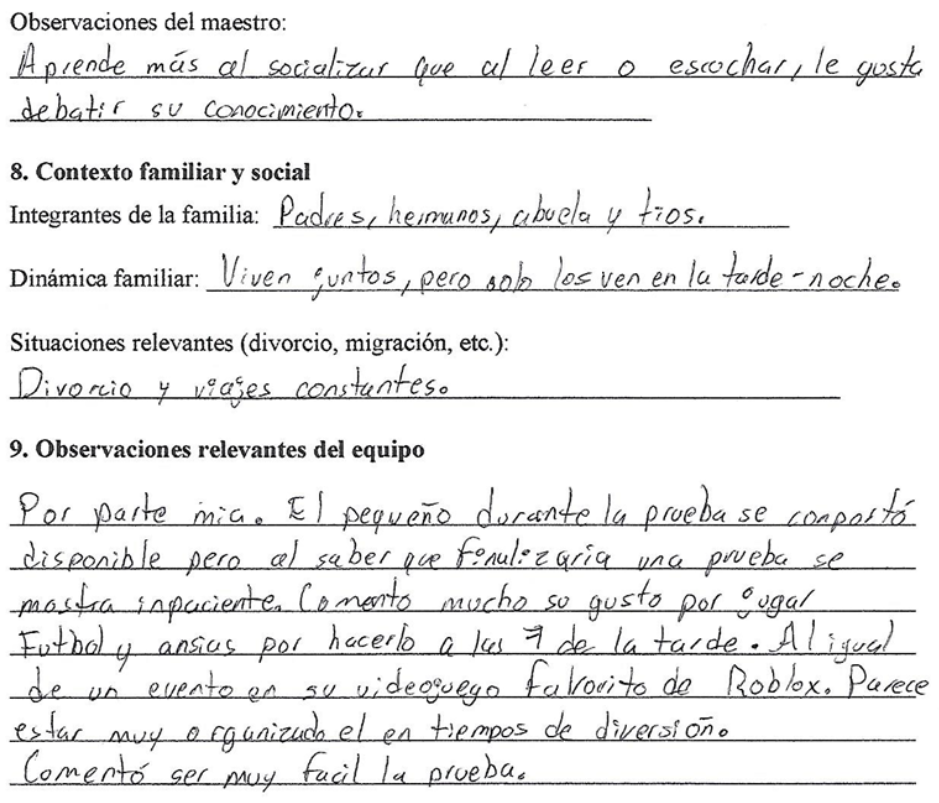 Observaciones del maestro:
Aprende más al socializar que al leer o escochar, le gusta
debatir su conocimiento.
8. Contexto familiar y social
Integrantes de la familia: Padres, hermanos, abuela y tios.
Dinámica familiar: Viven juntos, pero solo los ven en la tarde-noche.
Situaciones relevantes (divorcio, migración, etc.):
Divorcio y viajes constantes.
9. Observaciones relevantes del equipo
Por parte mia. El pequeño durante la prueba se comportó
disponible pero al saber que finalizaria una prueba se
mostra inpaciente. Comento mucho su gusto por jugar
Futbol y ansias por hacerlo a las 7 de la tarde. Al igual
de un evento en su videojuego falvorito de Roblox. Parece
estar muy organizado el en tiempos de diversión.
Comentó ser muy facil la prueba.